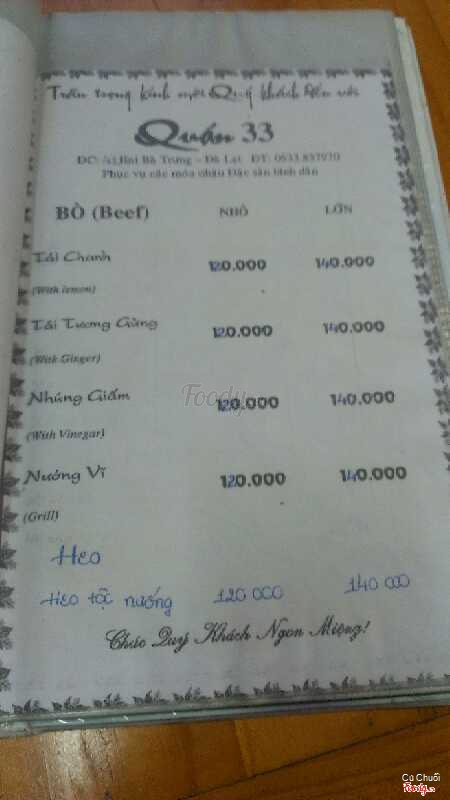 Trân trọng kính mời Quý khách đến với
Quán 33
ĐC: Hai Bà Trưng - Đà Lạt ĐT: 0633.837970
Phục vụ các món cháu Đặc sản bình dân
BÒ (Beef) NHỎ LỚN
Tái Chanh 120.000 140.000
(With lemon)
Tái Tương Gừng 120.000 140.000
(With Ginger)
Nhúng Giấm 120.000 140.000
(With Vinegar)
Nướng Vĩ 120.000 140.000
(Grill)
Heo
Heo tộc nướng 120 000 140 000
Chúc Quý Khách Ngon Miệng!
Foody
Cu Chuối
Foody.vn